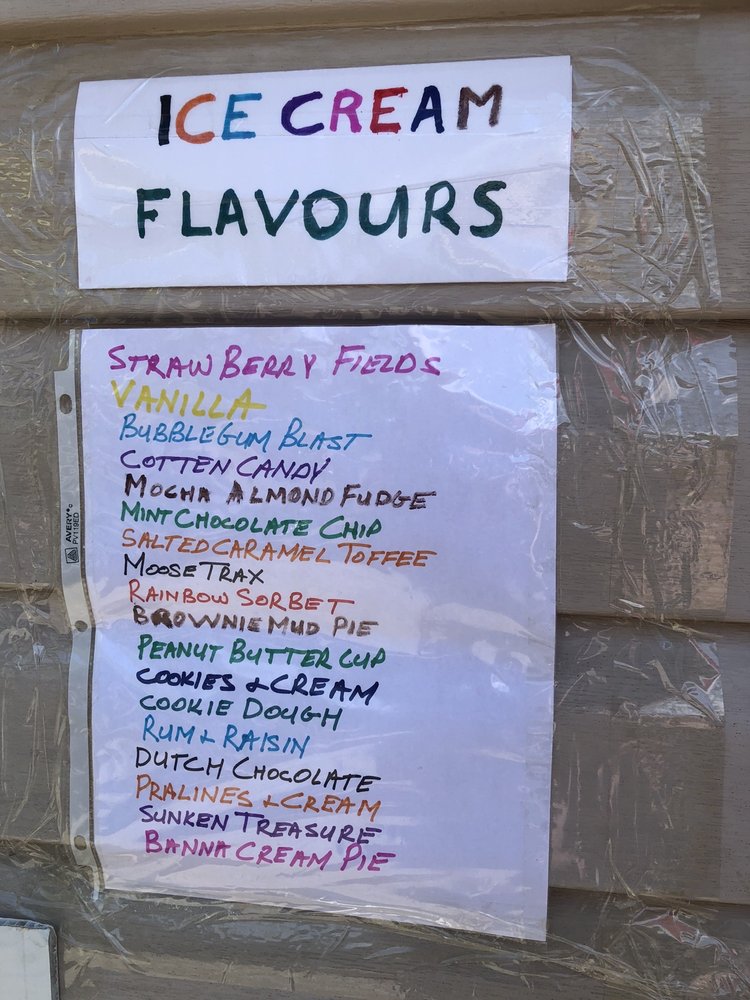 ICE CREAM
FLAVOURS
STRAWBERRY FIELDS
VANILLA
BUBBLEGUM BLAST
COTTEN CANDY
MOCHA ALMOND FUDGE
MINT CHOCOLATE CHIP
SALTED CARAMEL TOFFEE
MOOSE TRAX
RAINBOW SORBET
BROWNIE MUD PIE
PEANUT BUTTER CUP
COOKIES & CREAM
COOKIE DOUGH
RUM & RAISIN
DUTCH CHOCOLATE
PRALINES & CREAM
SUNKEN TREASURE
BANNA CREAM PIE
AVERY
PV119ED